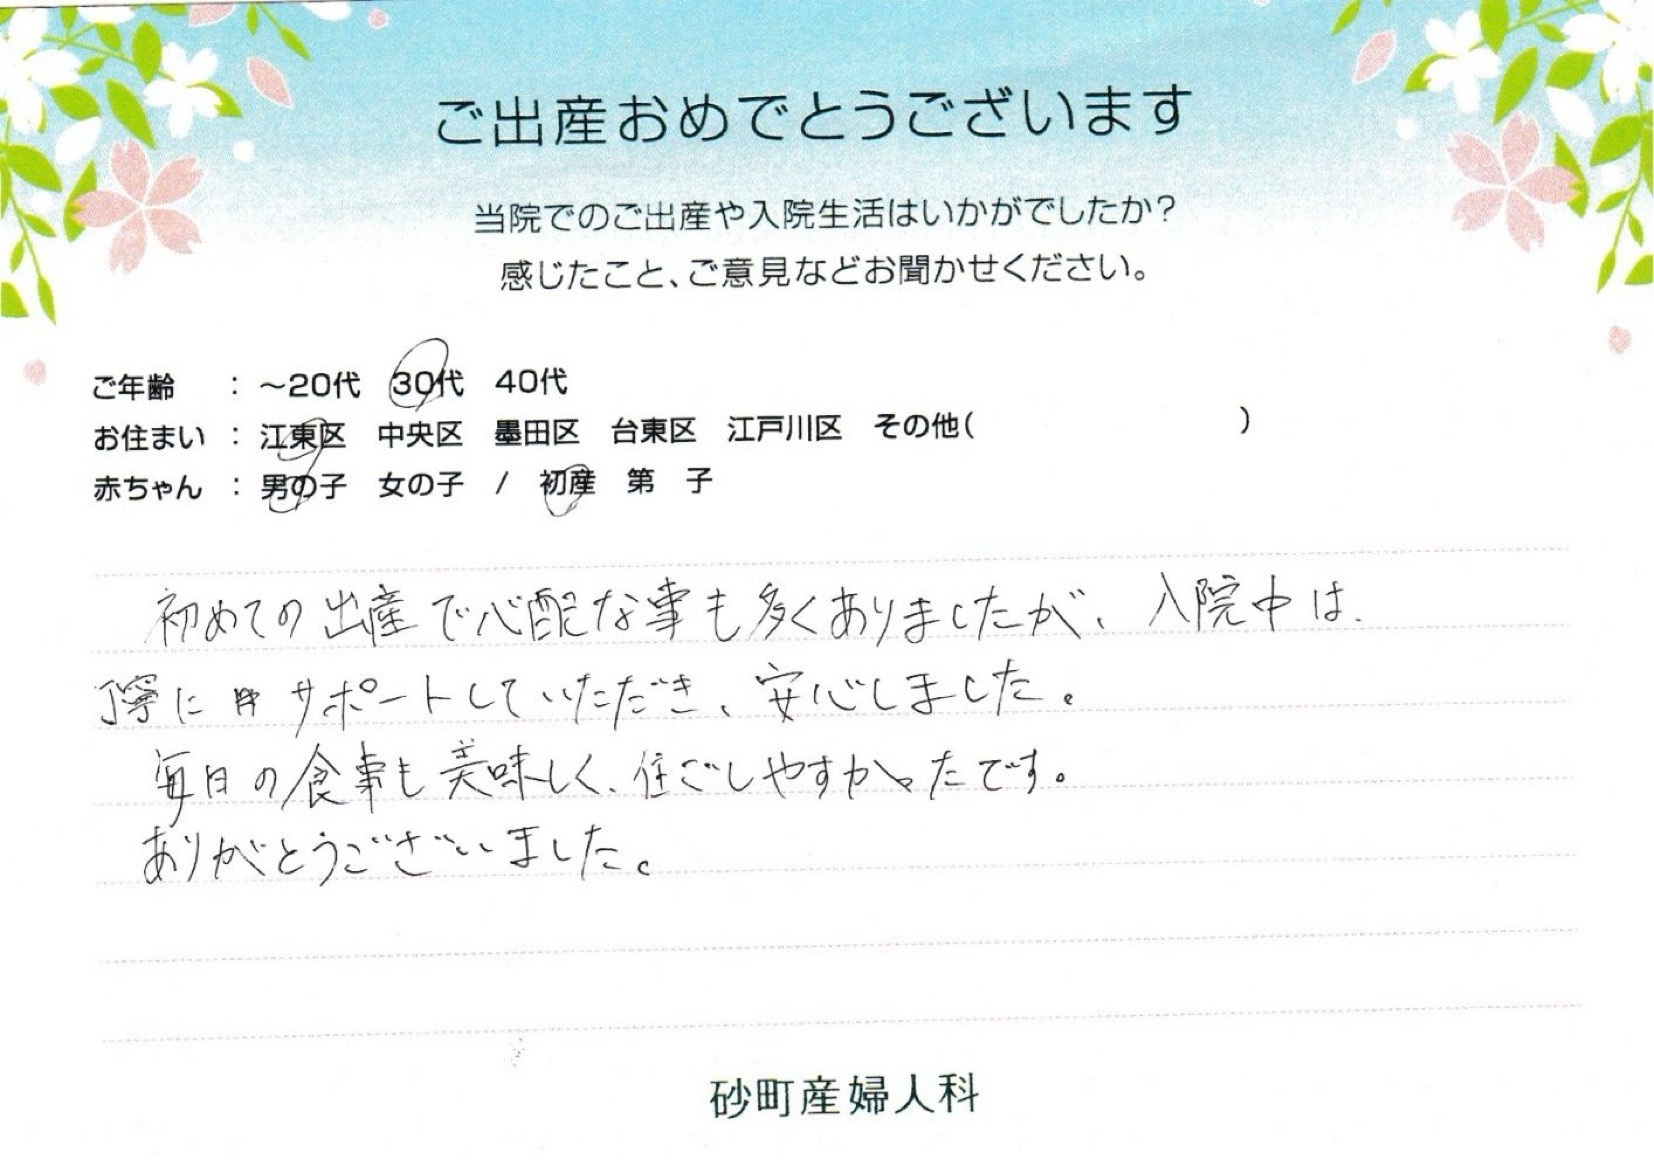 ご出産おめでとうございます
当院でのご出産や入院生活はいかがでしたか?
感じたこと、ご意見などお聞かせください。
ご年齢 : ～20代 30代 40代
お住まい : 江東区 中央区 墨田区 台東区 江戸川区 その他( )
赤ちゃん : 男の子 女の子 / 初産 第 子
初めての出産で心配な事も多くありましたが、入院中は
丁寧にサポートしていただき、安心しました。
毎日の食事も美味しく、住ごしやすかったです。
ありがとうございました。
砂町産婦人科